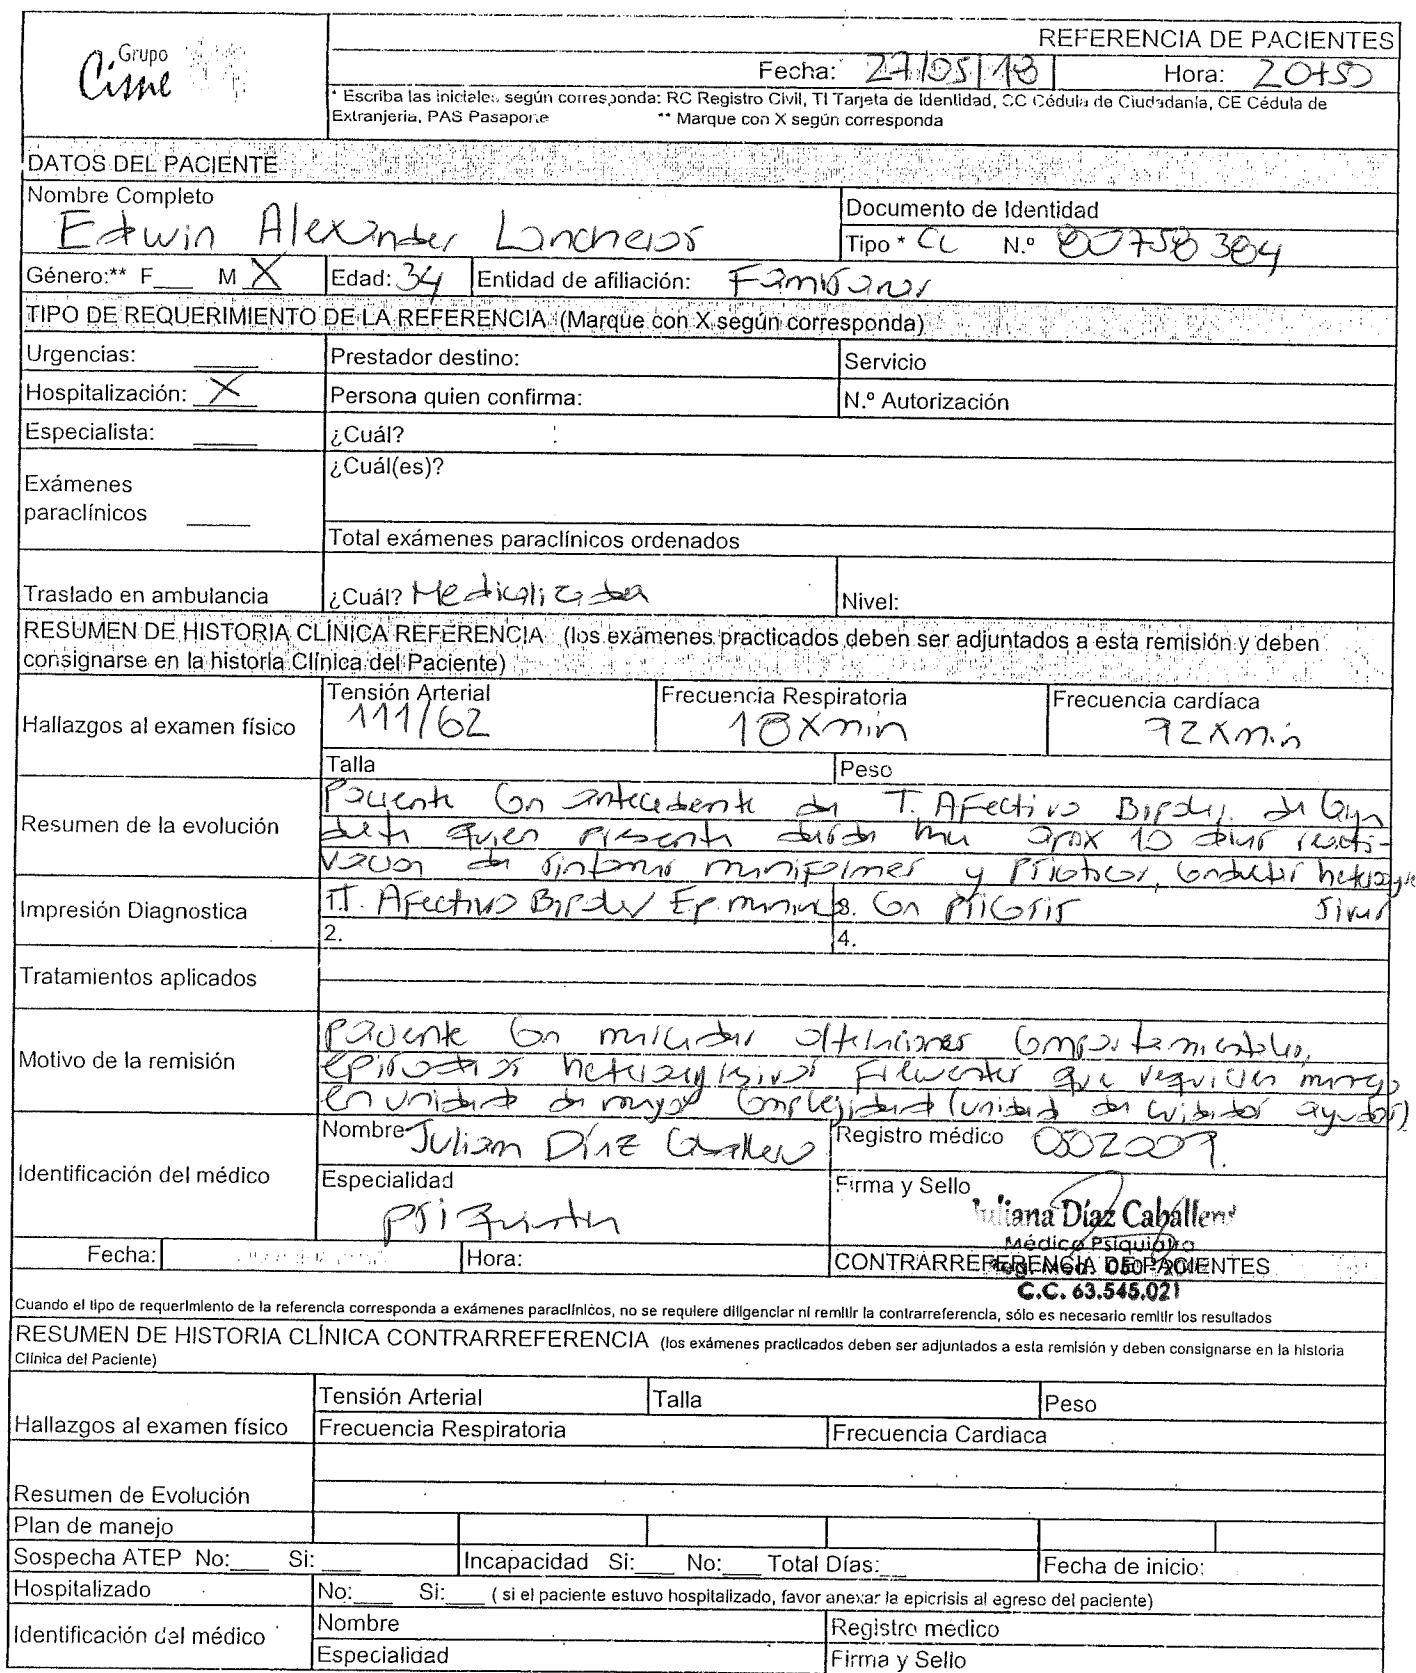 Grupo
Cisne
REFERENCIA DE PACIENTES
Fecha: 27/05/18 Hora: 20+50
* Escriba las iniciales según corresponda: RC Registro Civil, TI Tarjeta de Identidad, CC Cédula de Ciudadanía, CE Cédula de
Extranjeria, PAS Pasaporte ** Marque con X según corresponda
DATOS DEL PACIENTE
Nombre Completo
Edwin Alexander Lancheros
Documento de Identidad
Tipo * CC N.º 80758384
Género:** F___ M X Edad: 34 Entidad de afiliación: Famisanar
TIPO DE REQUERIMIENTO DE LA REFERENCIA (Marque con X según corresponda)
Urgencias: ____ Prestador destino: Servicio
Hospitalización: X Persona quien confirma: N.º Autorización
Especialista: ____ ¿Cuál?
Exámenes
paraclínicos ____
¿Cuál(es)?
Total exámenes paraclínicos ordenados
Traslado en ambulancia ¿Cuál? Medicalizada Nivel:
RESUMEN DE HISTORIA CLÍNICA REFERENCIA (los exámenes practicados deben ser adjuntados a esta remisión y deben
consignarse en la historia Clínica del Paciente)
Hallazgos al examen físico
Tensión Arterial Frecuencia Respiratoria Frecuencia cardíaca
111/62 18xmin 92xmin
Talla Peso
Resumen de la evolución
Paciente con antecedente de T. Afectivo Bipolar de
quien presenta desde hace aprox 10 dias reacti-
vacion de sintomas maniformes y psicoticos, conductas heteroagre
sivas
Impresión Diagnostica
1. T. Afectivo Bipolar Ep. maniaco 3. Con psicosis
2. 4.
Tratamientos aplicados
Motivo de la remisión
paciente con marcadas alteraciones comportamentales,
episodios heteroagresivos frecuentes que requieren manejo
en unidad de mayor complejidad (unidad de cuidados agudos)
Identificación del médico
Nombre Juliana Díaz Caballero Registro médico 0502009.
Especialidad
psiquiatra
Firma y Sello
Juliana Díaz Caballero
Médico Psiquiatra
C.C. 63.545.021
Fecha: Hora: CONTRARREFERENCIA DE PACIENTES
Cuando el tipo de requerimiento de la referencia corresponda a exámenes paraclínicos, no se requiere diligenciar ni remitir la contrarreferencia, sólo es necesario remitir los resultados
RESUMEN DE HISTORIA CLÍNICA CONTRARREFERENCIA (los exámenes practicados deben ser adjuntados a esta remisión y deben consignarse en la historia
Clínica del Paciente)
Hallazgos al examen físico
Tensión Arterial Talla Peso
Frecuencia Respiratoria Frecuencia Cardiaca
Resumen de Evolución
Plan de manejo
Sospecha ATEP No:___ Si:___ Incapacidad Si:___ No:___ Total Días:__ Fecha de inicio:
Hospitalizado No:___ Si:___ ( si el paciente estuvo hospitalizado, favor anexar la epicrisis al egreso del paciente)
Identificación del médico
Nombre Registro médico
Especialidad Firma y Sello